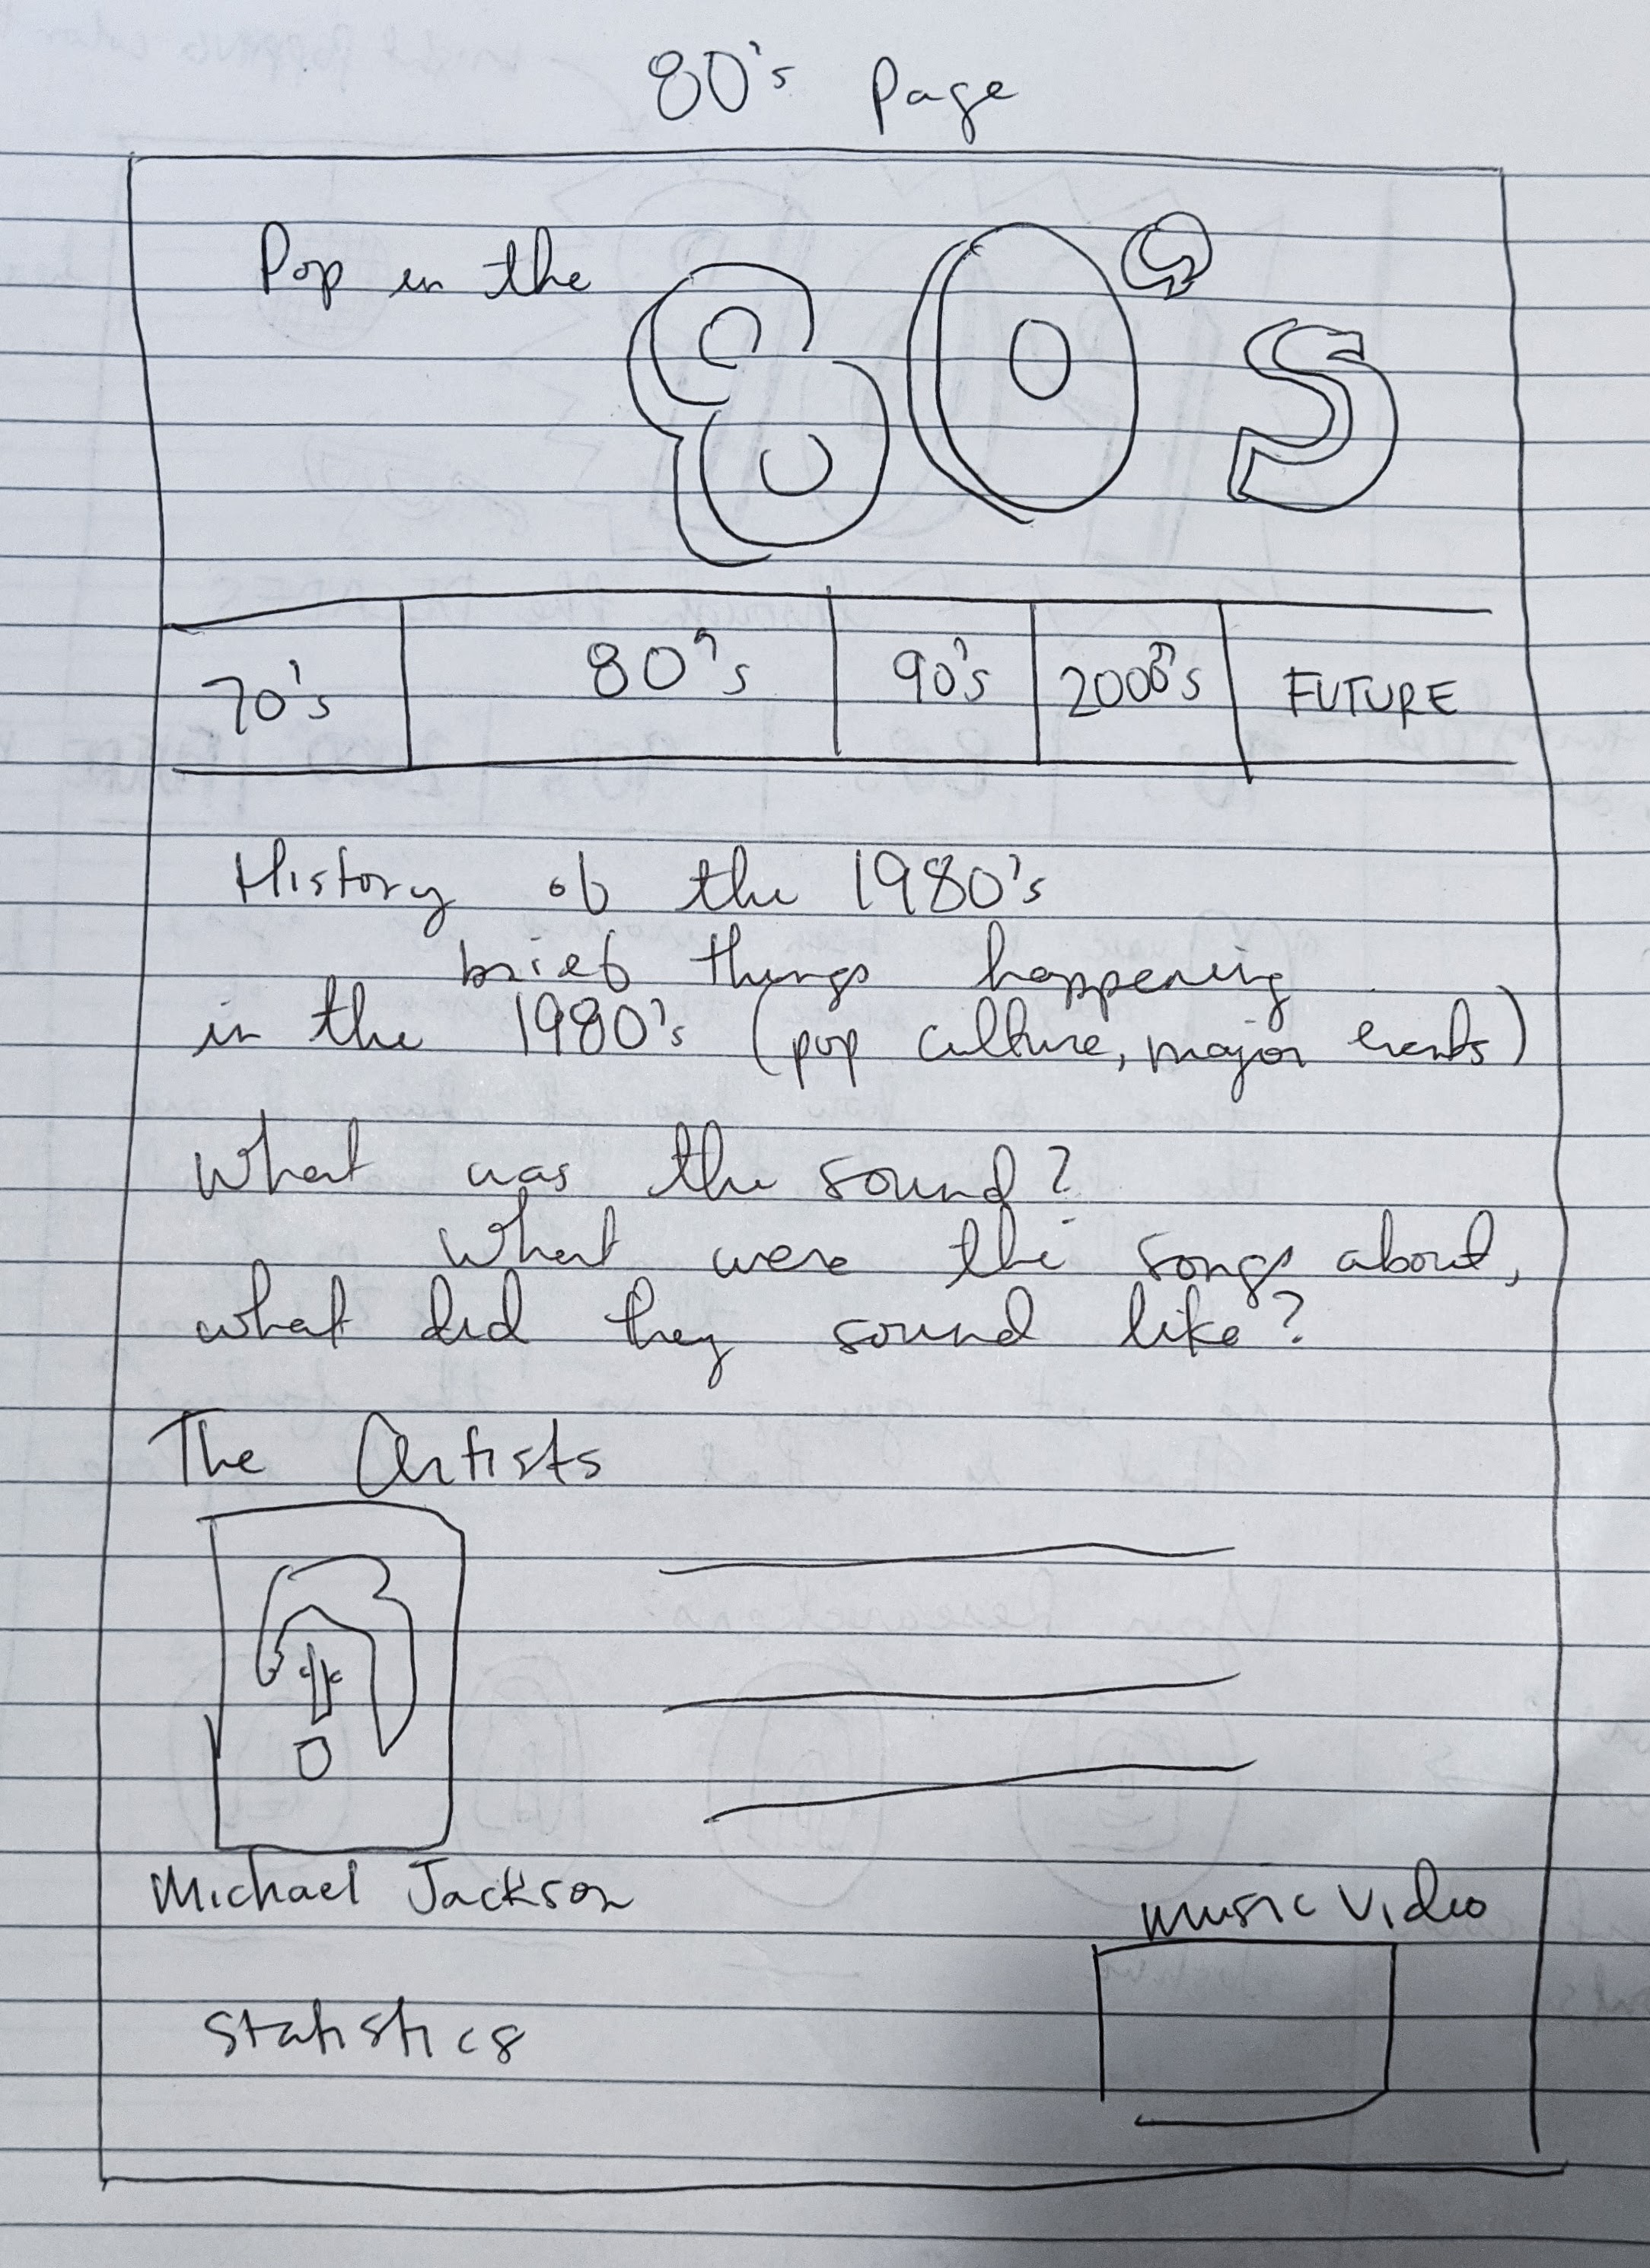 80's Page
Pop in the 80's
70's 80's 90's 2000's FUTURE
History of the 1980's
brief things happening
in the 1980's (pop culture, major events)
What was the sound?
What were the songs about,
what did they sound like?
The Artists
Michael Jackson
music video
Statistics